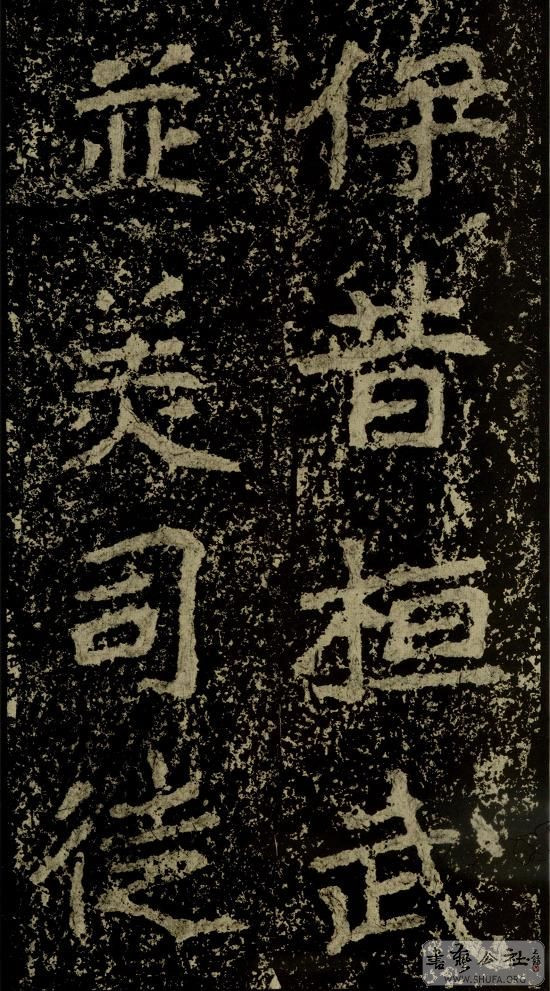 伊昔桓武
並美司徒
書藝公社
WWW.SHUFA.ORG